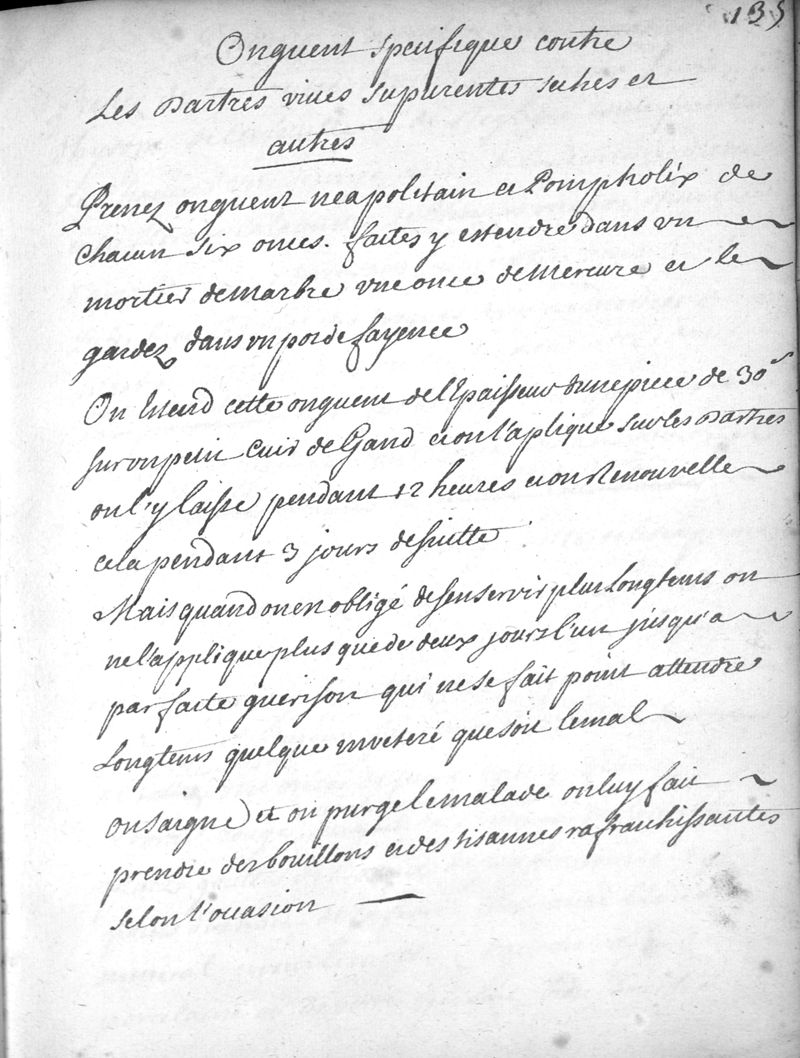 135
Onguent specifique contre
Les Dartres viues supurentes seches et
autres
Prenez onguent neapolitain et Pompholix de
chacun six onces. faites y estendre dans vn
mortier de marbre vne once de Mercure et le
gardez dans vn pot de fayence
On Etend cette onguent de l'Epaisseur d'une piece de 30s
sur vn petit Cuir de Gand et on l'aplique sur les Dartres
on l'y laisse pendant 12 heures et on Renouvelle
cela pendant 3 jours de suitte
Mais quand on en obligé de sen servir plus Longtems on
ne l'applique plus que de deux jours l'un jusqu'a
parfaite guerison qui ne se fait point attendre
Longtems quelque inveteré que soit le mal
on saigne et on purge le malade on luy fait
prendre des bouillons et des tisannes rafraichissantes
selon l'occasion